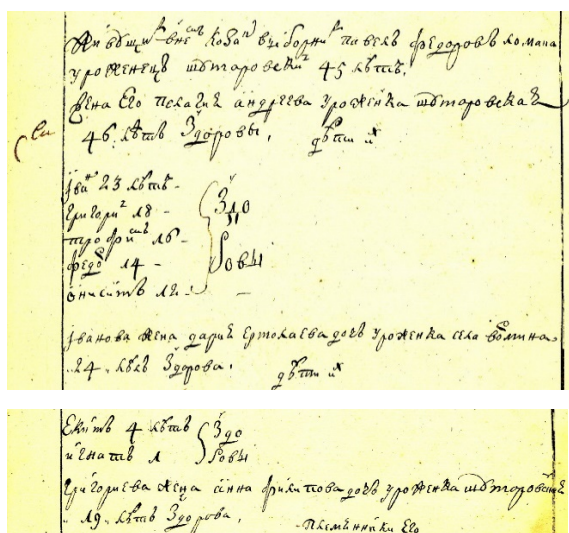 Живущий в не козакъ выборни павелъ федоровъ ломака
уроженецъ шътаровскиі 45 лѣтъ,
Жена Его пелагия андреева уроженка шътаровская
46 лѣтъ Здоровы, дѣти иⷯ
іванъ 23 лѣтъ
григори 18
трофимъ 16
федоръ 14
онисимъ 12
Здо
ровы
іванова жена дария Ермолаева дочь уроженка села
24 лѣтъ Здорова, дѣти иⷯ
4 лѣтъ
игнатъ 1
Здо
ровы
григориева жена анна филипова дочь уроженка шътаровская
19 лѣтъ Здорова, племенники Его